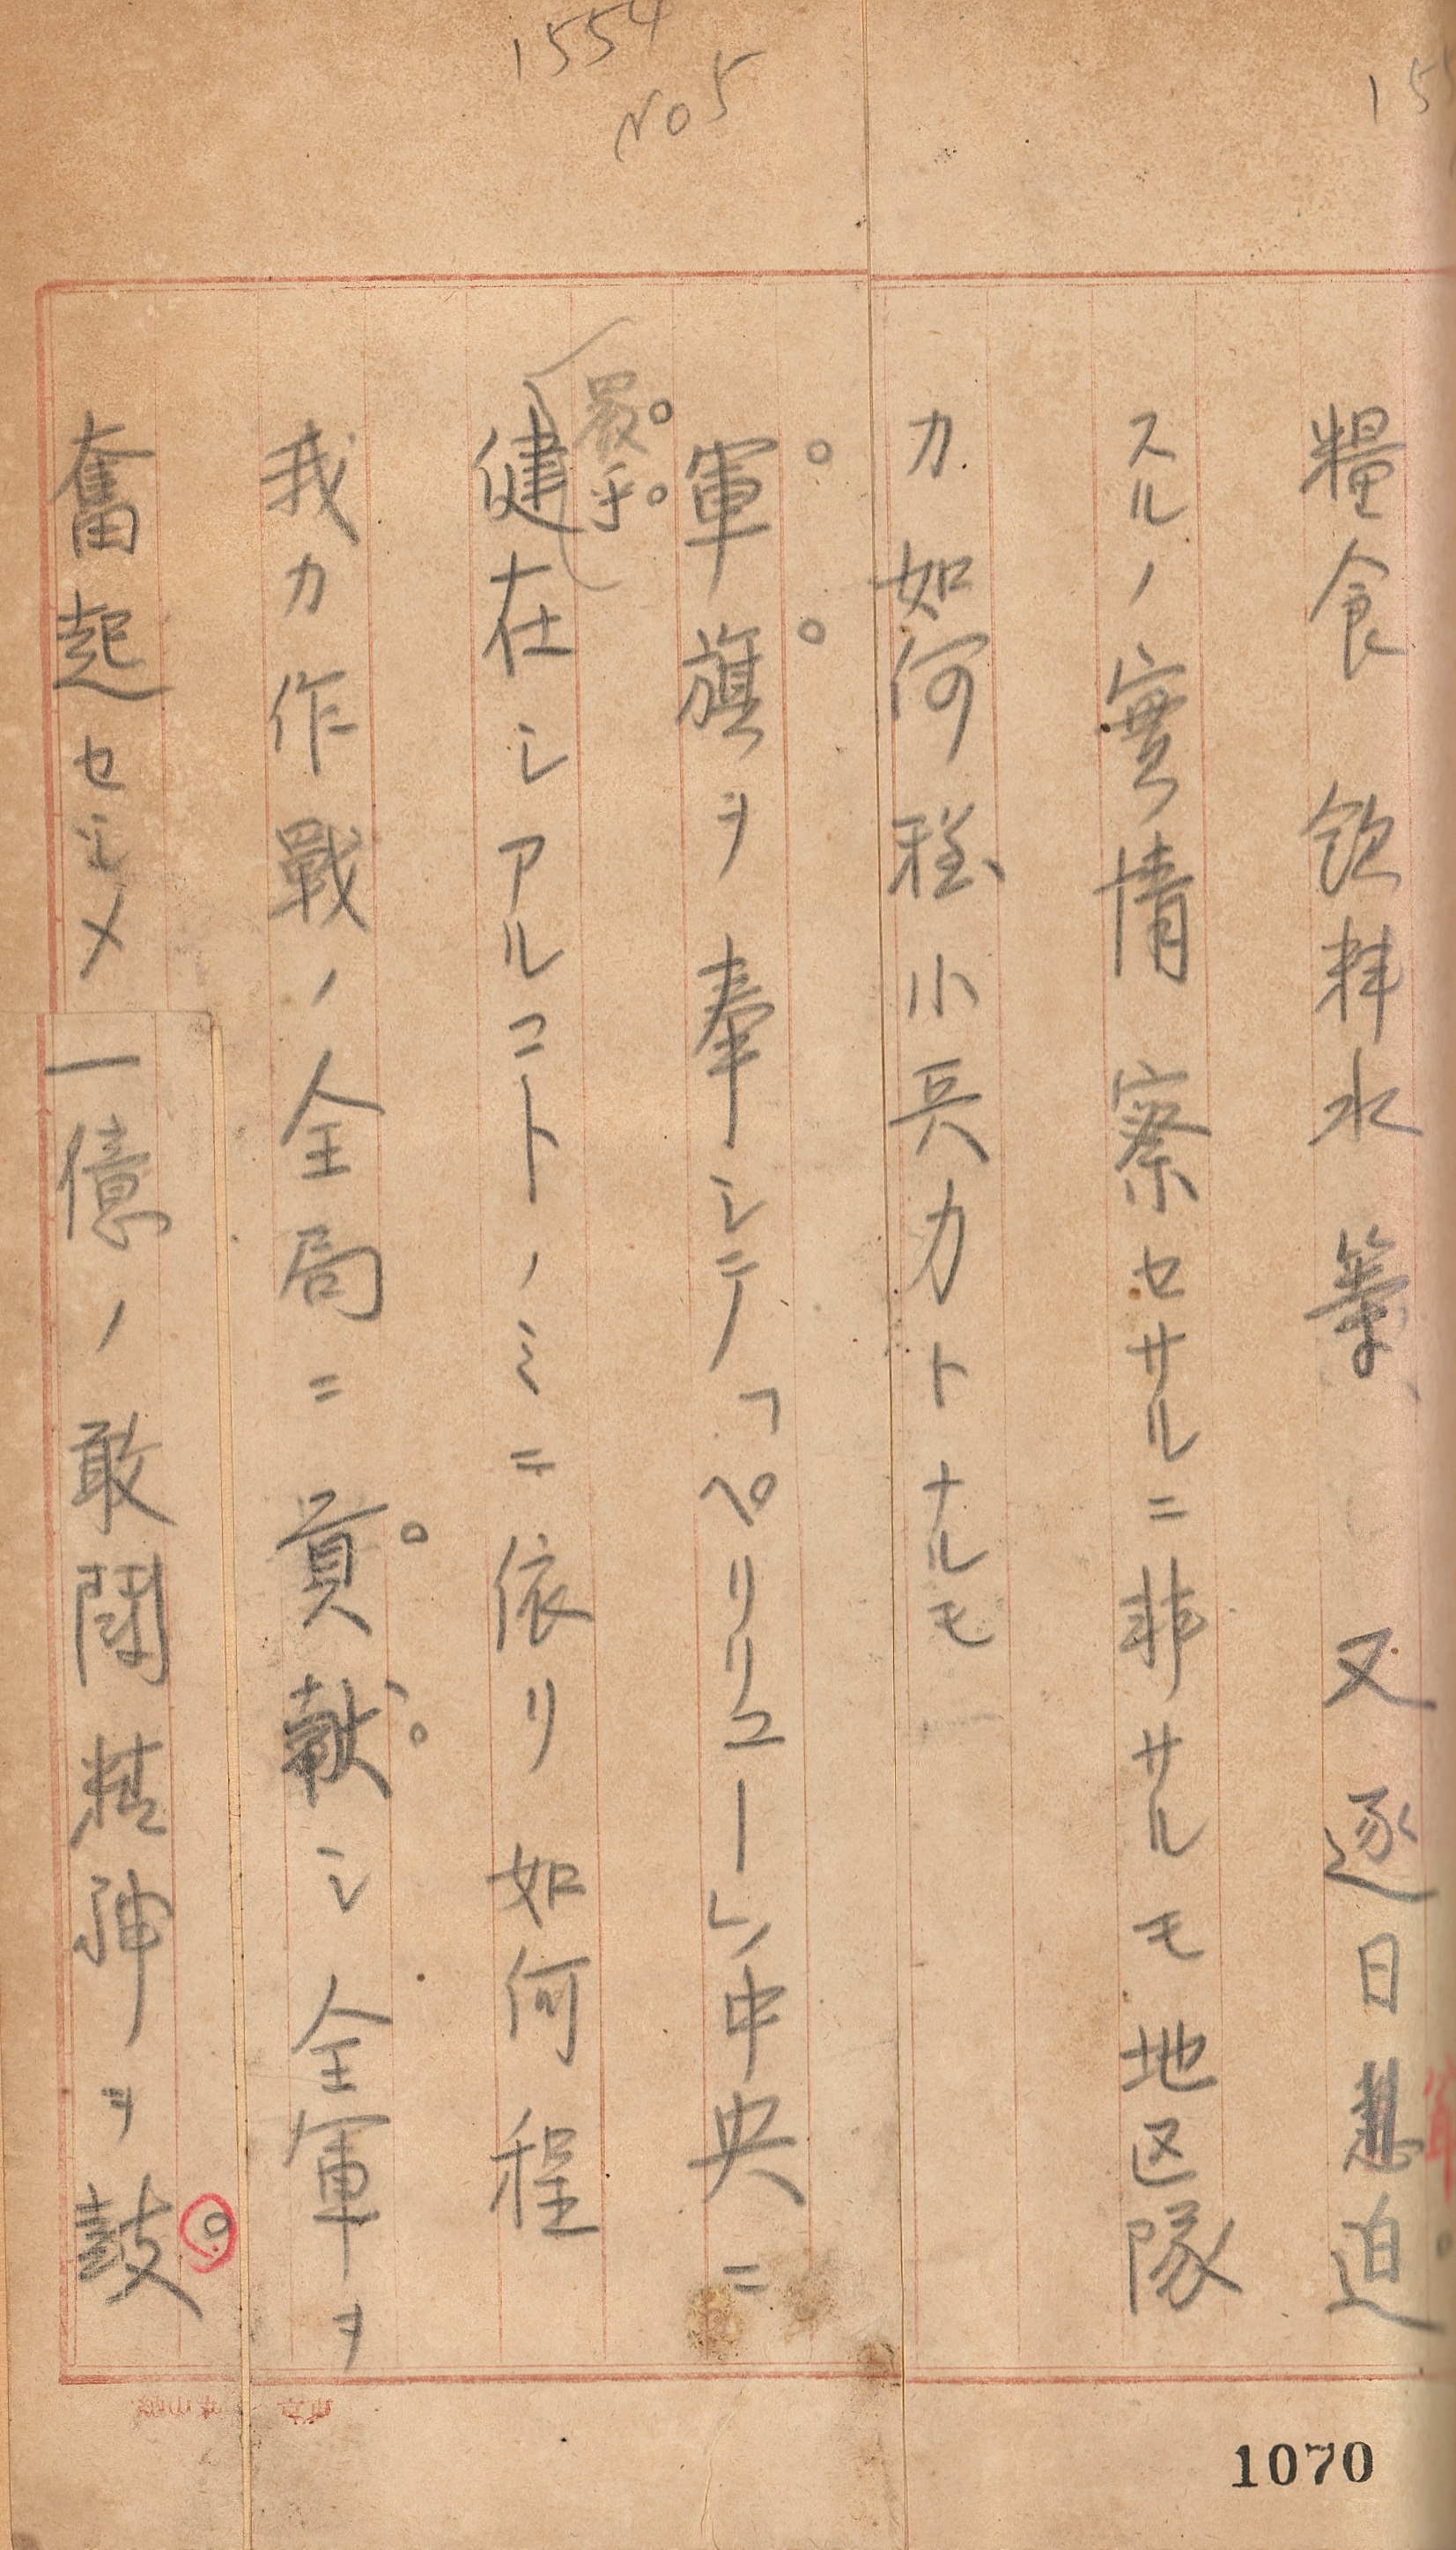 1554
No 5
15
糧食 飲料水等 又逐日 迫
スルノ實情察セサルニ非サルモ地区隊
カ如何程小兵力トナルモ
軍旗ヲ奉シテ「ペリリュー」ノ中央ニ
嚴乎
健在シアルコトノミニ依リ如何程
我カ作戰ノ全局ニ貢献シ全軍ヲ
奮起セシメ一億ノ敢闘精神ヲ鼓
1070